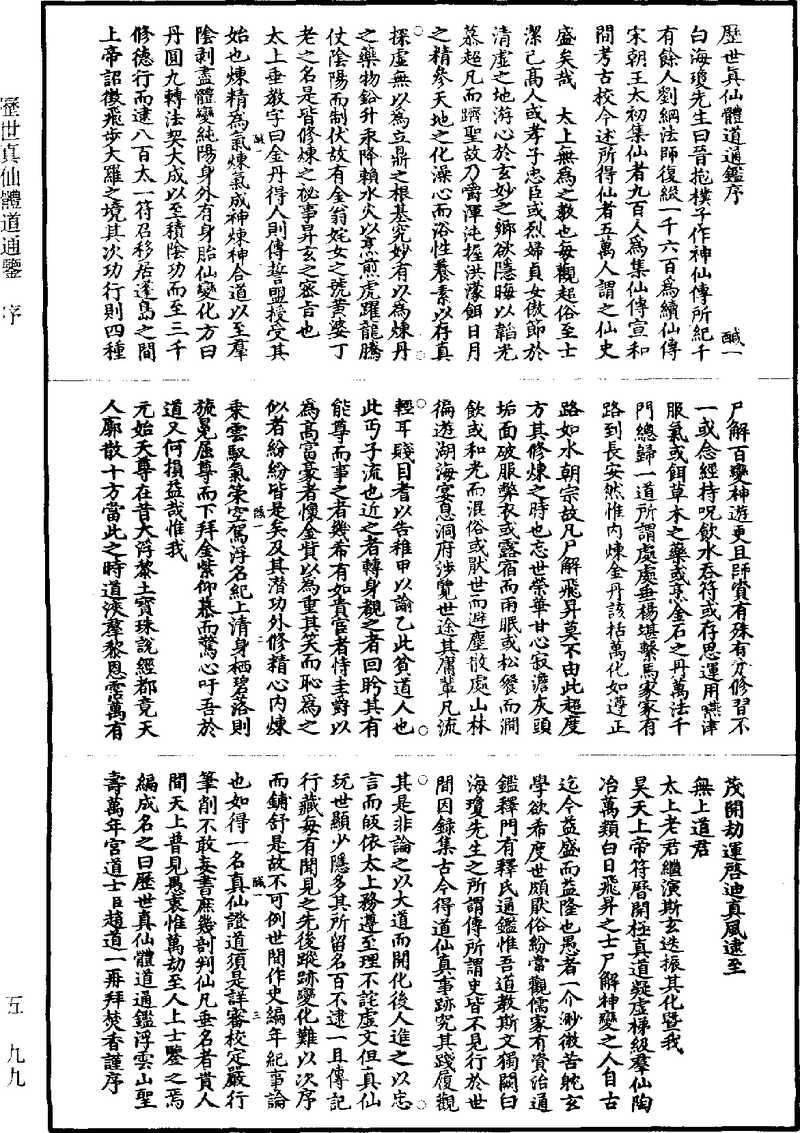 歷世真仙體道通鑑序
鹹一
白海瓊先生曰晉抱樸子作神仙傳所紀千
有餘人劉綱法師復綴一千六百為續仙傳
宋朝王太初集仙者九百人為集仙傳宣和
間考古校今述所得仙者五萬人謂之仙史
盛矣哉　太上無為之教也每觀超俗至士
潔己高人或孝子忠臣或烈婦貞女傲節於
清虛之地游心於玄妙之鄉欲隱晦以韜光
慕超凡而躋聖故乃爵渾沌握洪濛餌日月
之精參天地之化澡心而浴性養素以存真
探虛無以為立鼎之根基究妙有以為煉丹
之藥物鉛升汞降賴水火以烹煎虎躍龍騰
仗陰陽而制伏故有金翁姹女之號黃婆丁
老之名是皆修煉之祕事昇玄之密言也
太上垂教字曰金丹得人則傳誓盟授受其
鹹一
始也煉精為氣煉氣成神煉神合道以至羣
陰剝盡體變純陽身外有身胎仙變化方曰
丹圓九轉法契大成以至積陰功而至三千
修德行而逮八百太一符召移居蓬島之間
上帝詔徵飛步大羅之境其次功行則四種
尸解百變神遊更且師資有殊有分修習不
一或念經持呪飲水吞符或存思運用嚥津
服氣或餌草木之藥或烹金石之丹萬法千
門總歸一道所謂處處垂楊堪繫馬家家有
路到長安然惟內煉金丹該括萬化如遵正
路如水朝宗故凡尸解飛昇莫不由此超度
方其修煉之時也忘世榮華甘心寂澹灰頭
垢面破服弊衣或露宿而雨眠或松餐而澗
飲或和光而混俗或猒世而避塵散處山林
徧遊湖海宴息洞府涉覽世途其庸輩凡流
輕耳賤目耆以告稚甲以諭乙此貧道人也
此丐子流也近之者轉身觀之者回盻其有
能尊而事之者幾希有如貴官者恃圭爵以
為高富豪者懷金貲以為重其笑而恥為之
似者紛紛皆是矣及其潛功外修精心內煉
鹹一
二
乘雲馭氣策空駕浮名紀上清身栖碧落則
旒冕屈尊而下拜金紫仰慕而驚心吁吾於
道又何損益哉惟我
元始天尊在昔大浮黎土寶珠說經都竟天
人廓散十方當此之時道浹羣黎恩霑萬有
茂開劫運啓迪真風逮至
無上道君
太上老君繼演斯玄迭振其化暨我
昊天上帝符曆開極真道凝虛梯級羣仙陶
冶萬類白日飛昇之士尸解神變之人自古
迄今益盛而益隆也愚者一介渺微苦躭玄
學欲希度世頗猒俗紛嘗觀儒家有資治通
鑑釋門有釋氏通鑑惟吾道教斯文獨闕白
海瓊先生之所謂傳所謂史皆不見行於世
間因錄集古今得道仙真事跡究其踐履觀
其是非論之以大道而開化後人進之以忠
言而皈依太上務遵至理不詫虛文但真仙
玩世顯少隱多其所留名百不逮一且傳記
行藏每有聞見之先後蹤跡變化難以次序
而鋪舒是故不可例世間作史編年紀事論
鹹一
三
也如得一名真仙證道須是詳審校定嚴行
筆削不敢妄書庶幾剖判仙凡垂名者貴人
間天上普見愚衷惟萬劫至人上士鑒之焉
編成名之曰歷世真仙體道通鑑浮雲山聖
壽萬年宮道士臣趙道一再拜焚香謹序
歷世真仙體道通鑒　序
五　九九